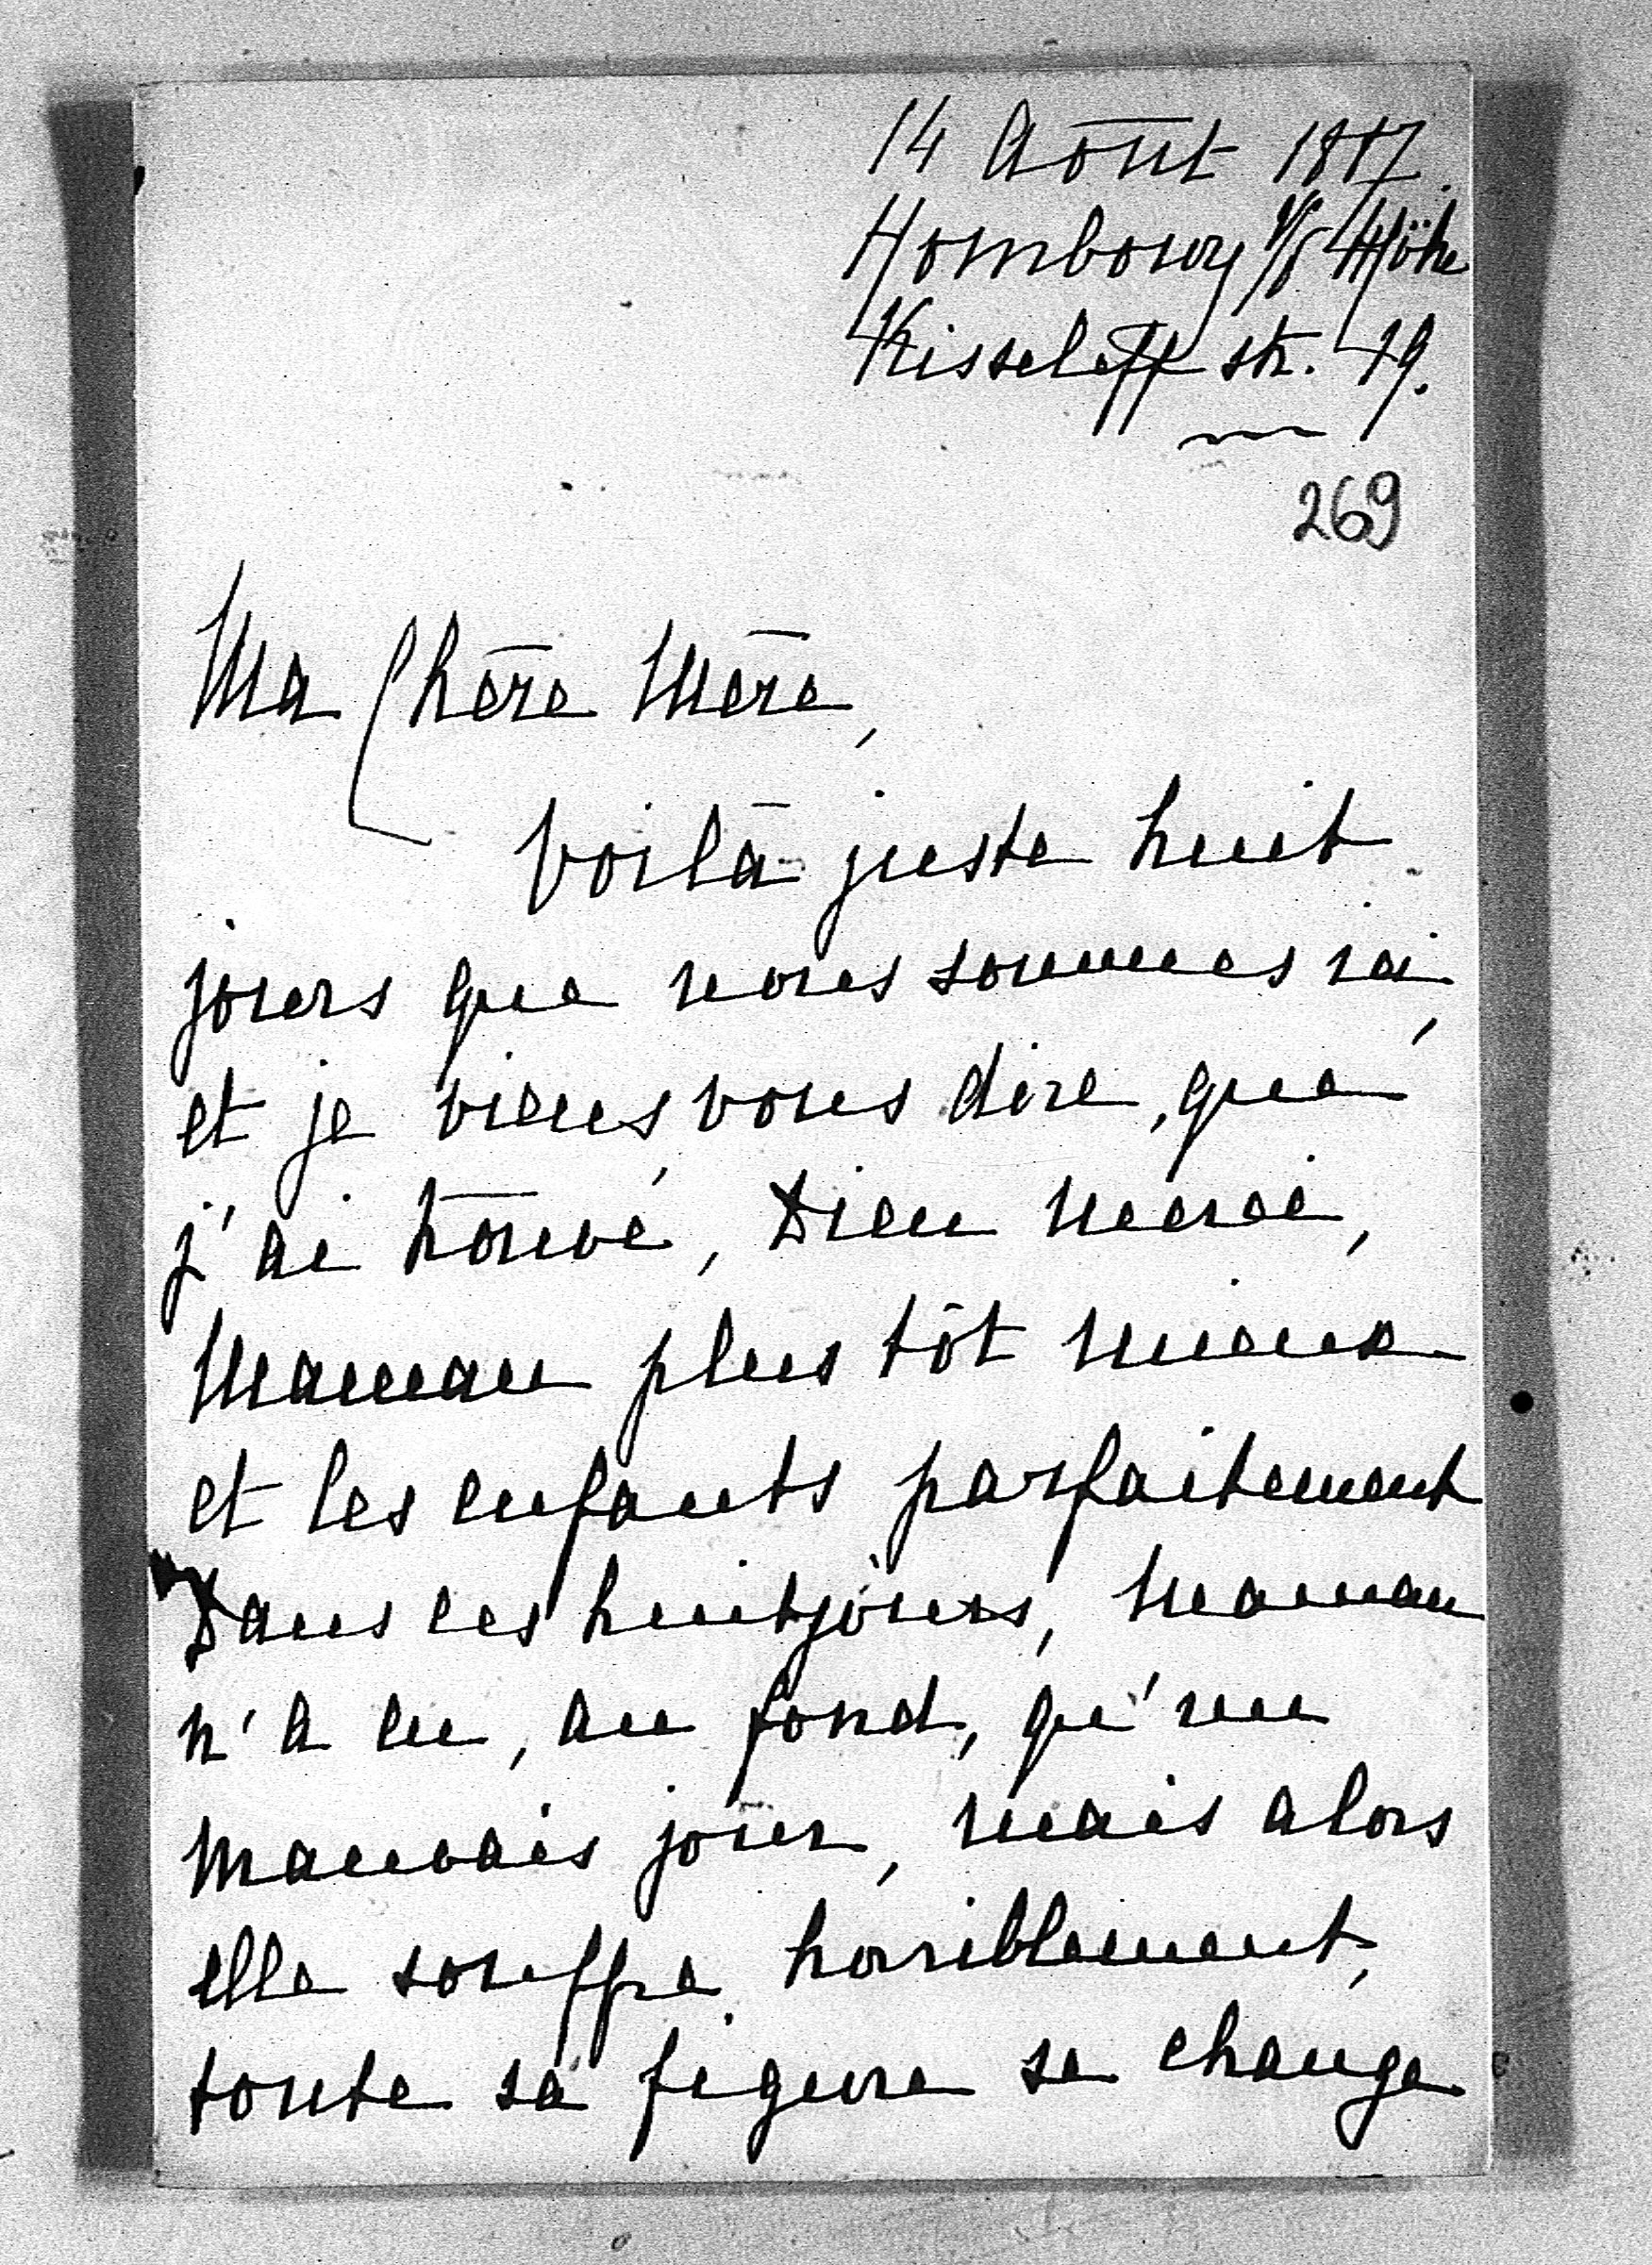 14 Août 1887.
Hombourg v/d Höhe
Kisseleff str. 19.
269
Ma Chère Mère,
Voilà juste huit
jours que nous sommes ici,
et je viens vous dire, que
j'ai trouvé, Dieu merci,
Maman plus tôt mieux
et les enfants parfaitement
Dans ces huit jours, Maman
n'a eu, au fond, qu'un
mauvais jour, mais alors
elle souffre horriblement,
toute sa figure se change